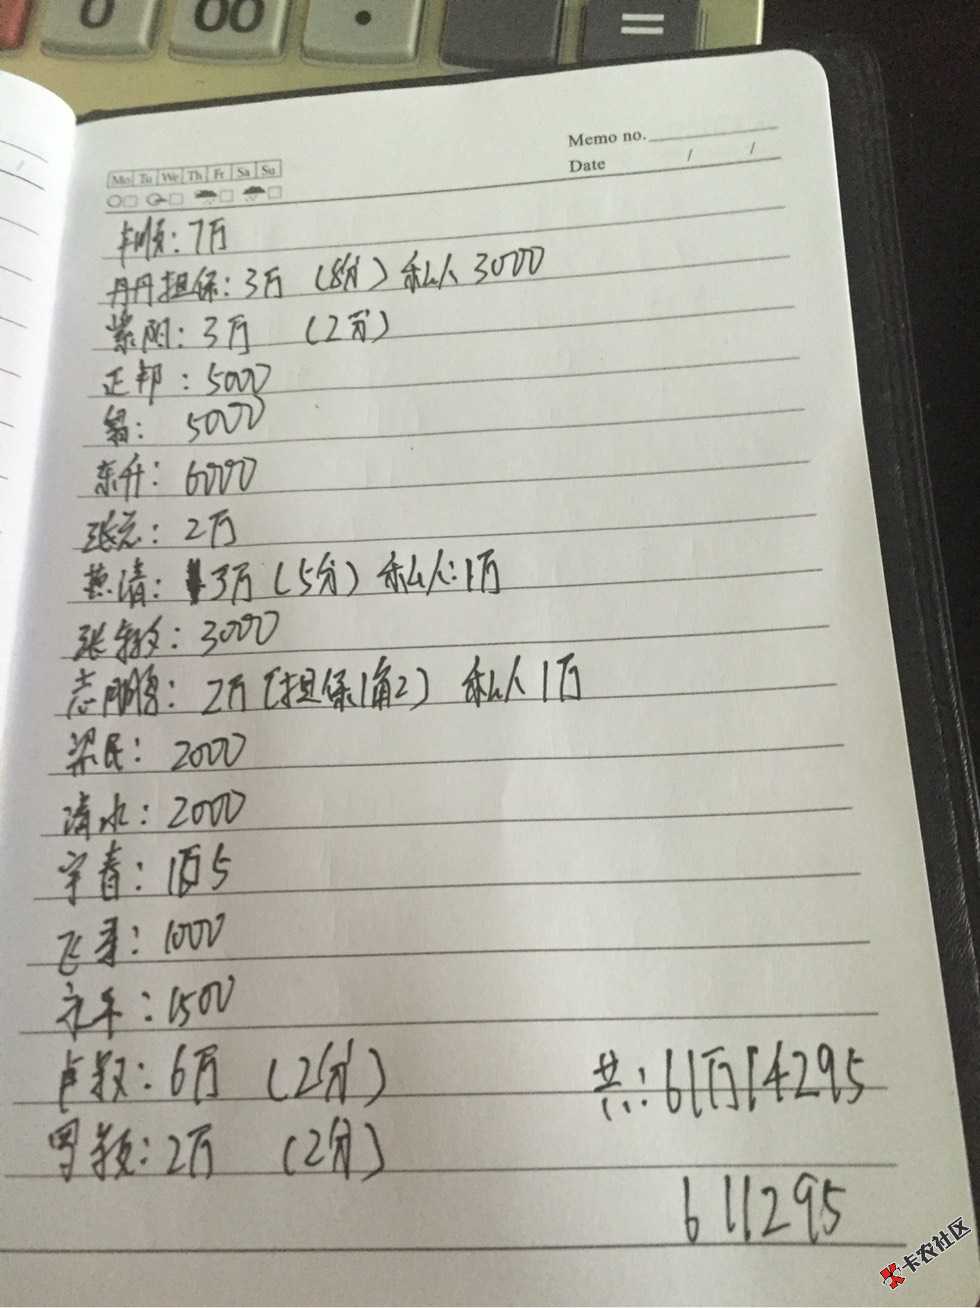 0 00 · =
Memo no.
Date / /
Mo Tu We Th Fr Sa Su
顺：7万
丹丹担保：3万 （8分） 私人 3000
紫阳：3万 （2分）
正邦：5000
5000
东升：6000
张元：2万
燕清：3万（5分） 私人：1万
张敏：3000
志鹏：2万（担保1角2） 私人 1万
梁民：2000
清水：2000
宇春：1万5
飞哥：1000
永平：1500
卢叔：6万 （2分）
2万 （2分）
共：61万14295
611295
卡农社区